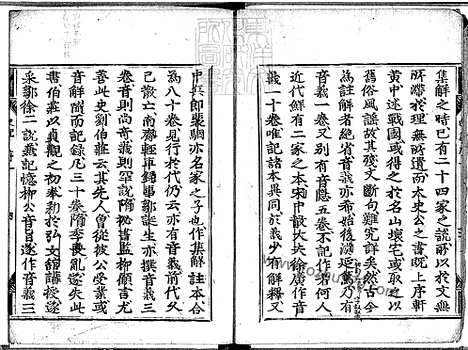 集解之時已有二十四家之說所以於文無
所滯於理無所遺而太史公之書既上序軒
黃中述戰國或得之於名山壞宅或取之以
舊俗風謠故其殘文斷句難究詳矣然古今
為註解者絕省音義亦希始後漢延篤乃有
音義一卷又別有音隱五卷不記作者何人
近代鮮有二家之本宋中散大夫徐廣作音
義一十卷唯記諸本異同於義少有解釋又
中兵郎裴駰亦名家之子也作集解註本合
為八十卷見行於代仍云亦有音義前代久
已散亡南齊輕車錄事鄒誕生亦撰音義三
卷音則尚奇義則罕說隋秘書監柳顧言尤
善此史劉伯莊云其先人曾從彼公受業或
音解隨而記錄凡三十卷隋季喪亂遂失此
書伯莊以貞觀之初奉勑於弘文館講授遂
采鄒徐二說兼記憶柳公音旨遂作音義三